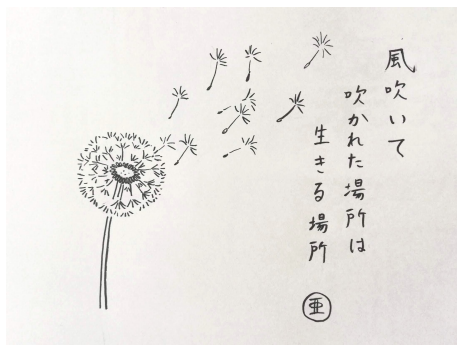 風吹いて
吹かれた場所は
生きる場所
亜